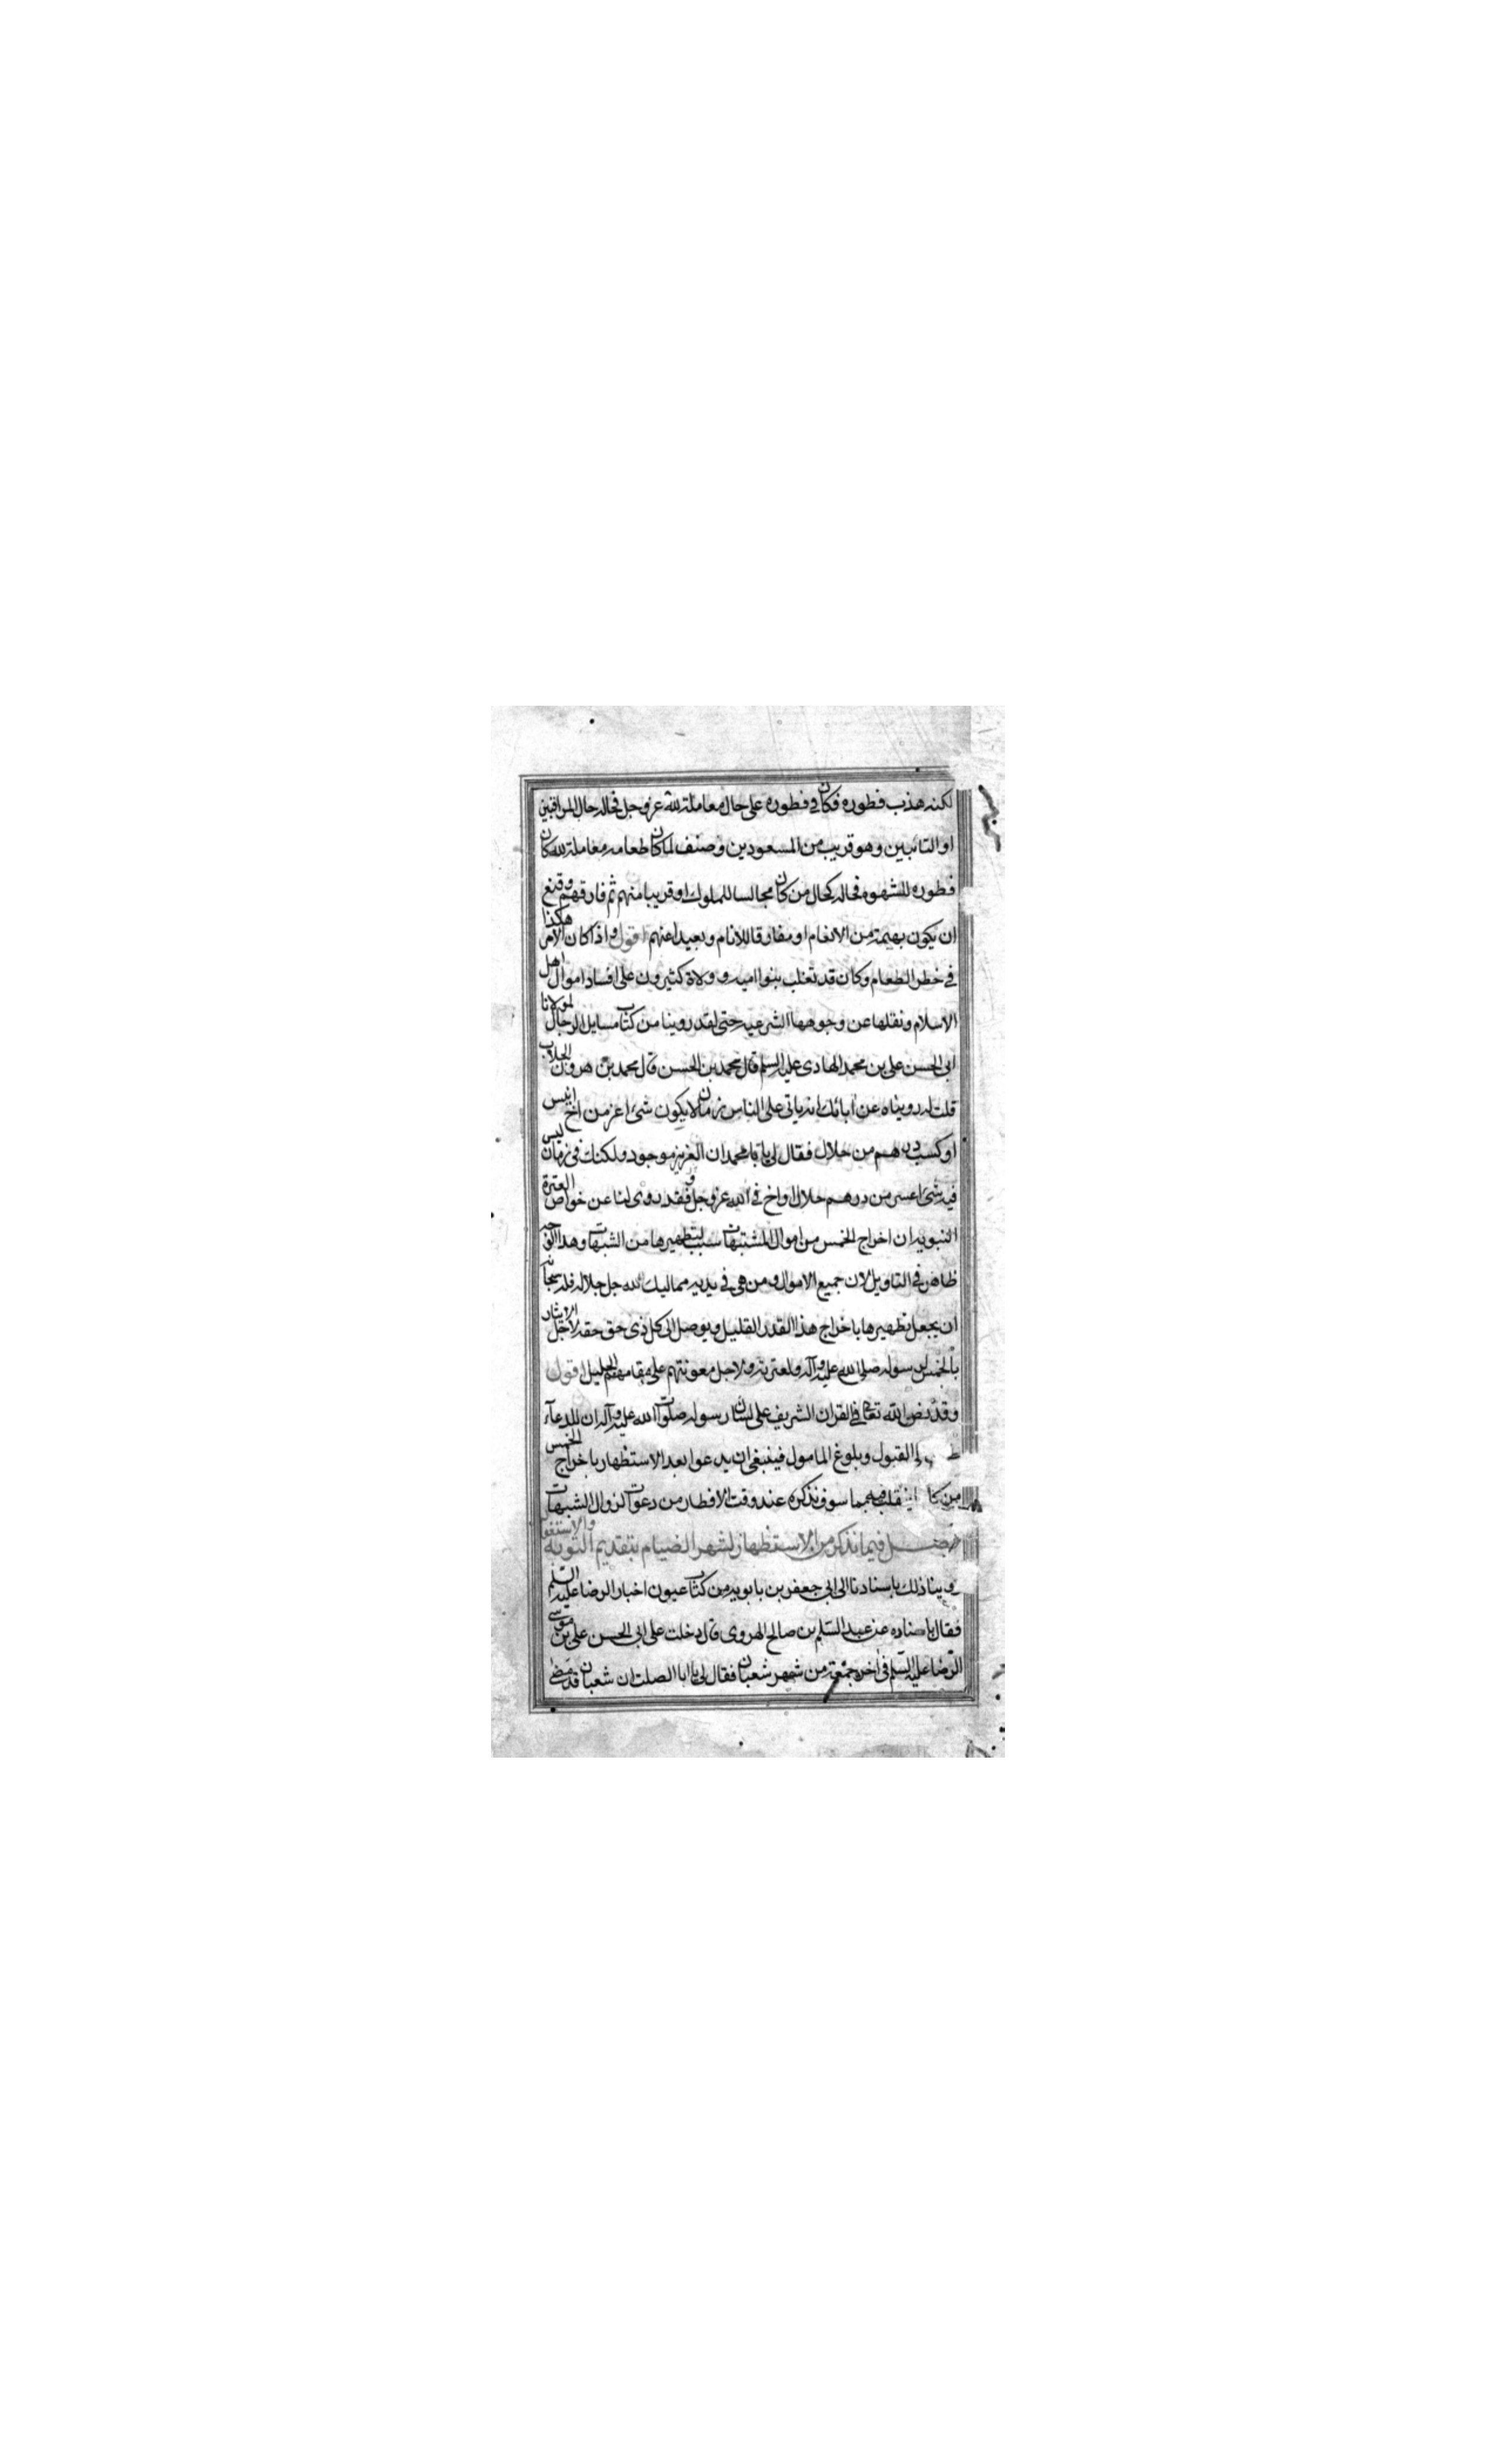 لكنه هذب فطوره فكان في فطوره على حال معاملة لله عز وجل فحاله حال المراقبين
او التائبين وهو قريب من المسعودين وصنف لما كان طعامه معاملة لله كان
فطوره للشهوه فحاله كحال من كان مجالسا للملوك او قريبا منهم ثم فارقهم وقنع
ان يكون بهيمة من الانعام او مفارقا للانام وبعيدا عنهم اقول واذا كان الامر هكذا
في خطر الطعام وكان قد تغلب بنوا اميه وولاة كثيرون على افساد اموال اهل
الاسلام ونقلها عن وجوهها الشرعيه حتى لقد روينا من كتاب مسايل الرجال لمولانا
ابى الحسن على بن محمد الهادى عليه السلم قال محمد بن الحسن قال محمد بن هرون الجلاب
قلت له روينا عن آبائك انه ياتى على الناس زمان لا يكون شئ اعز من اخ انيس
او كسب درهم من حلال فقال لى يا با محمد ان العزيز موجود ولكنك فى زمان ليس
فيه شئ اعسر من درهم حلال او اخ في الله عز وجل وفقد روى لنا عن خواص العترة
النبويه ان اخراج الخمس من اموال المشتبهات سبب لتطهيرها من الشبهات وهذا الوجه
ظاهر في التاويل لان جميع الاموال ومن هى في يديه مماليك لله جل جلاله فله سبحانه
ان يجعل تطهيرها باخراج هذا القدر القليل ويوصل الى كل ذى حق حقه لاجل الايثار
بالخمس لرسوله صلى الله عليه وآله ولعترته ولاجل معونتهم على مقامهم الجليل اقول
وقد نص الله تعالى في القران الشريف على لسان رسوله صلوات الله عليه وآله ان للدعآء
القبول وبلوغ المامول فينبغى ان يدعوا بعد الاستظهار باخراج الخمس
من فيه مما سوف نذكره عند وقت الافطار من دعوات لزوال الشبهات
فصل فيما نذكر من الاستظهار لشهر الصيام بتقديم التوبة والاستغفار
روينا ذلك باسنادنا الى ابى جعفر بن بابويه من كتاب عيون اخبار الرضا عليه السلم
فقال باسناده عن عبد السلم بن صالح الهروى قال دخلت على ابى الحسن على بن موسى
الرضا عليه السلم فى آخر جمعة من شهر شعبان فقال لى يا ابا الصلت ان شعبان قد مضى